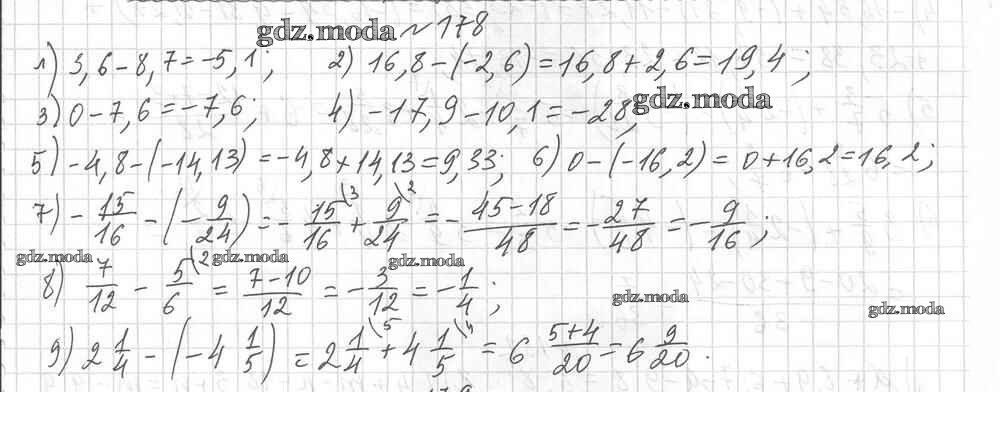 gdz.moda № 178
1) 3,6 - 8,7 = -5,1; 2) 16,8 - (-2,6) = 16,8 + 2,6 = 19,4;
3) 0 - 7,6 = -7,6; 4) -17,9 - 10,1 = -28; gdz.moda
5) -4,8 - (-14,13) = -4,8 + 14,13 = 9,33; 6) 0 - (-16,2) = 0 + 16,2 = 16,2;
7) - 15/16 - (- 9/24) = - 15/16 \3 + 9/24 \2 = - (45 - 18)/48 = - 27/48 = - 9/16;
gdz.moda gdz.moda gdz.moda
8) 7/12 - 5/6 \2 = (7 - 10)/12 = - 3/12 = - 1/4;
gdz.moda gdz.moda
9) 2 1/4 - (-4 1/5) = 2 1/4 \5 + 4 1/5 \4 = 6 (5+4)/20 = 6 9/20.